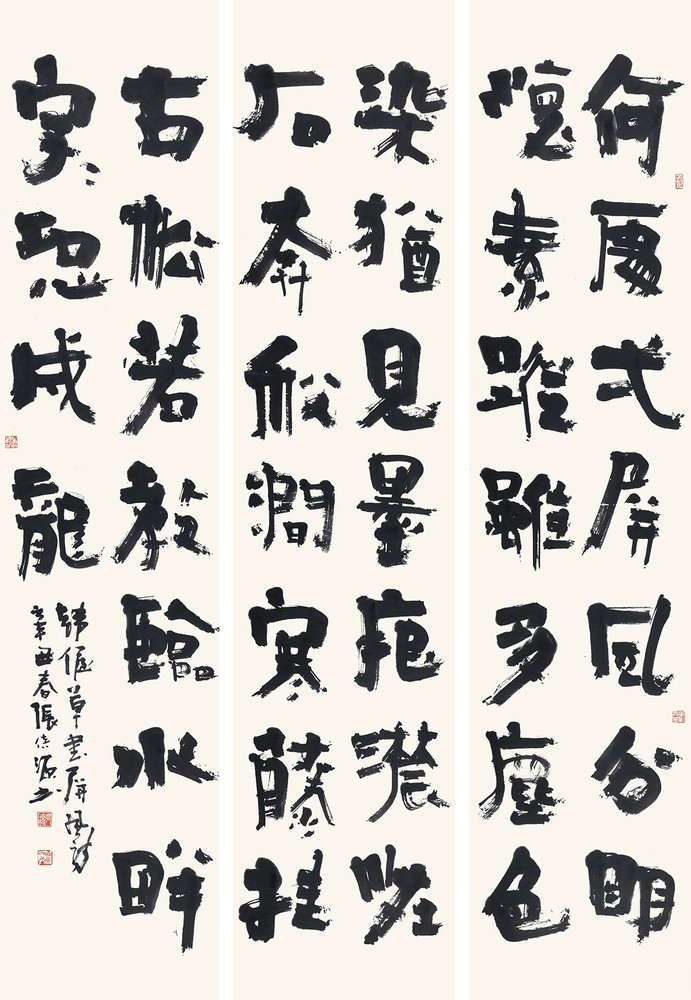 何處弌屏風分明
懷素蹤雖多塵色
染猶見墨痕濃怪
石奔秋澗寒藤挂
古松若教臨水畔
字〻恐成龍
韓偓草書屏風詩
辛丑春張信源書